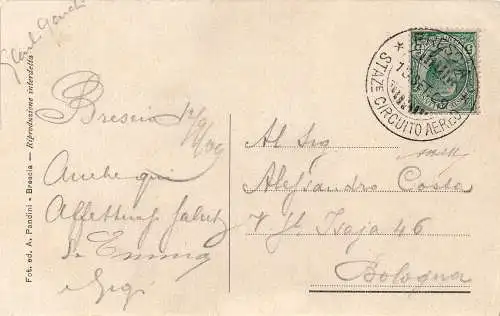 Brescia 12/9/09
Anche qui
Affettuosi saluti
da Emma
e Gigi
Al Sig
Alessandro Costa
V. S. Isaia 46
Bologna
Fot. ed. A. Pandini • Brescia — Riproduzione interdetta
BRESCIA
STAZ.E CIRCUITO AEREO